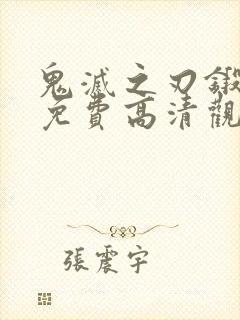 鬼滅之刃鍛
免費高清觀
張震宇